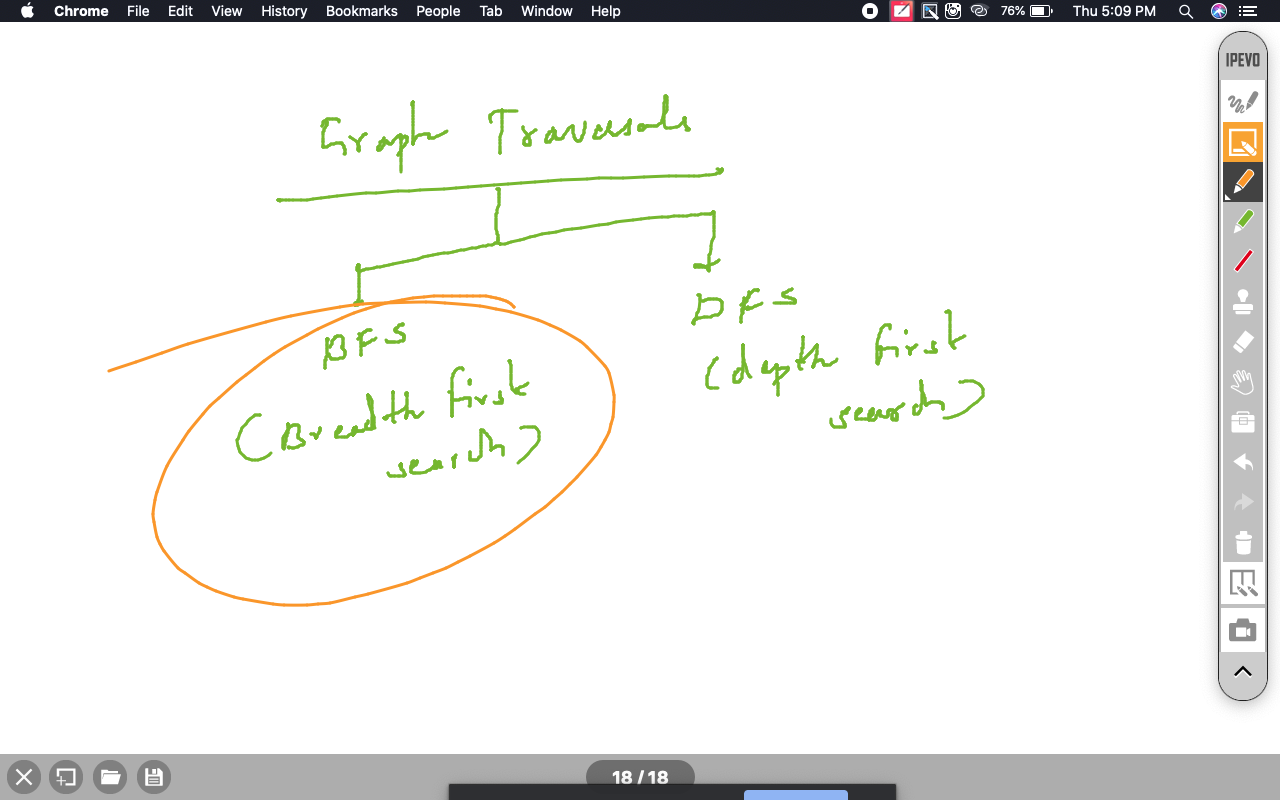 Chrome File Edit View History Bookmarks People Tab Window Help 76% Thu 5:09 PM
IPEVO
Graph Traversals
BFS
(Breadth first
search)
DFS
(depth first
search)
18 / 18